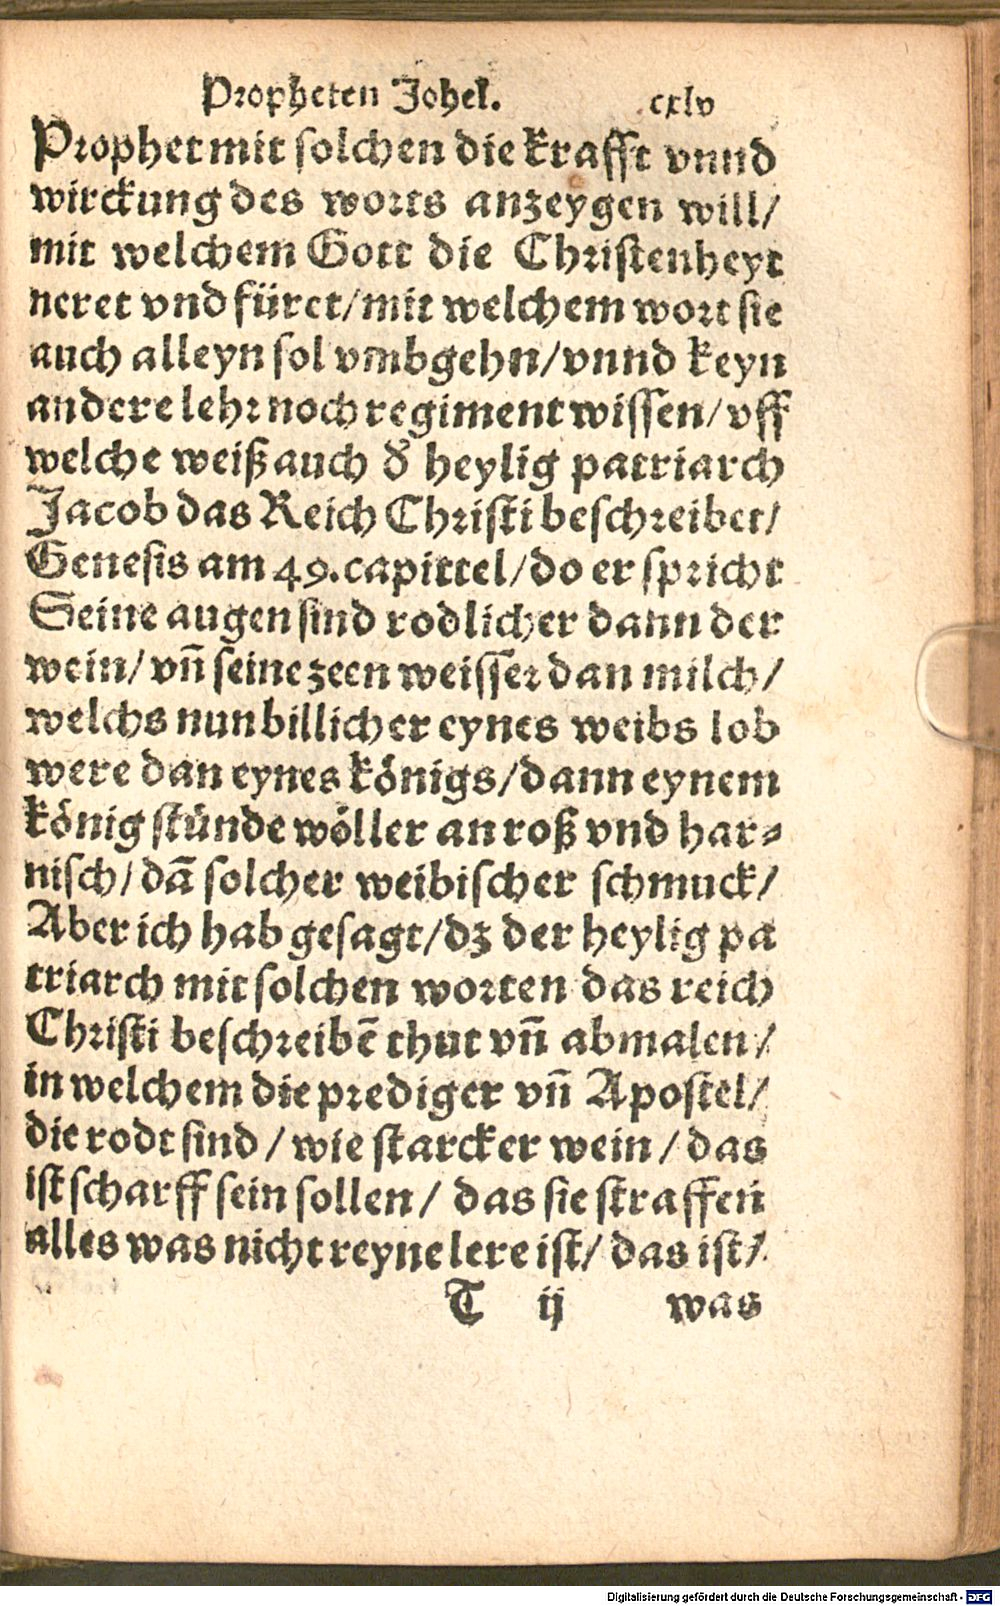 Propheten Johel. cxlv
Prophet mit solchen die krafft vnnd
wirckung des worts anzeygen will/
mit welchem Gott die Christenheyt
neret vnd füret/mit welchem wort sie
auch alleyn sol vmbgehn/vnnd keyn
andere lehr noch regiment wissen/vff
welche weiß auch d̕ heylig patriarch
Jacob das Reich Christi beschreibet/
Genesis am 49.capittel/do er spricht
Seine augen sind rodlicher dann der
wein/vñ seine zeen weisser dan milch/
welchs nun billicher eynes weibs lob
were dan eynes königs/dann eynem
könig stünde wöller an roß vnd har⸗
nisch/dã solcher weibischer schmuck/
Aber ich hab gesagt/dz der heylig pa
triarch mit solchen worten das reich
Christi beschreibẽ thut vñ abmalen/
in welchem die prediger vñ Apostel/
die rodt sind/wie starcker wein/das
ist scharff sein sollen/das sie straffen
alles was nicht reyne lere ist/das ist/
T ij was
Digitalisierung gefördert durch die Deutsche Forschungsgemeinschaft - DFG